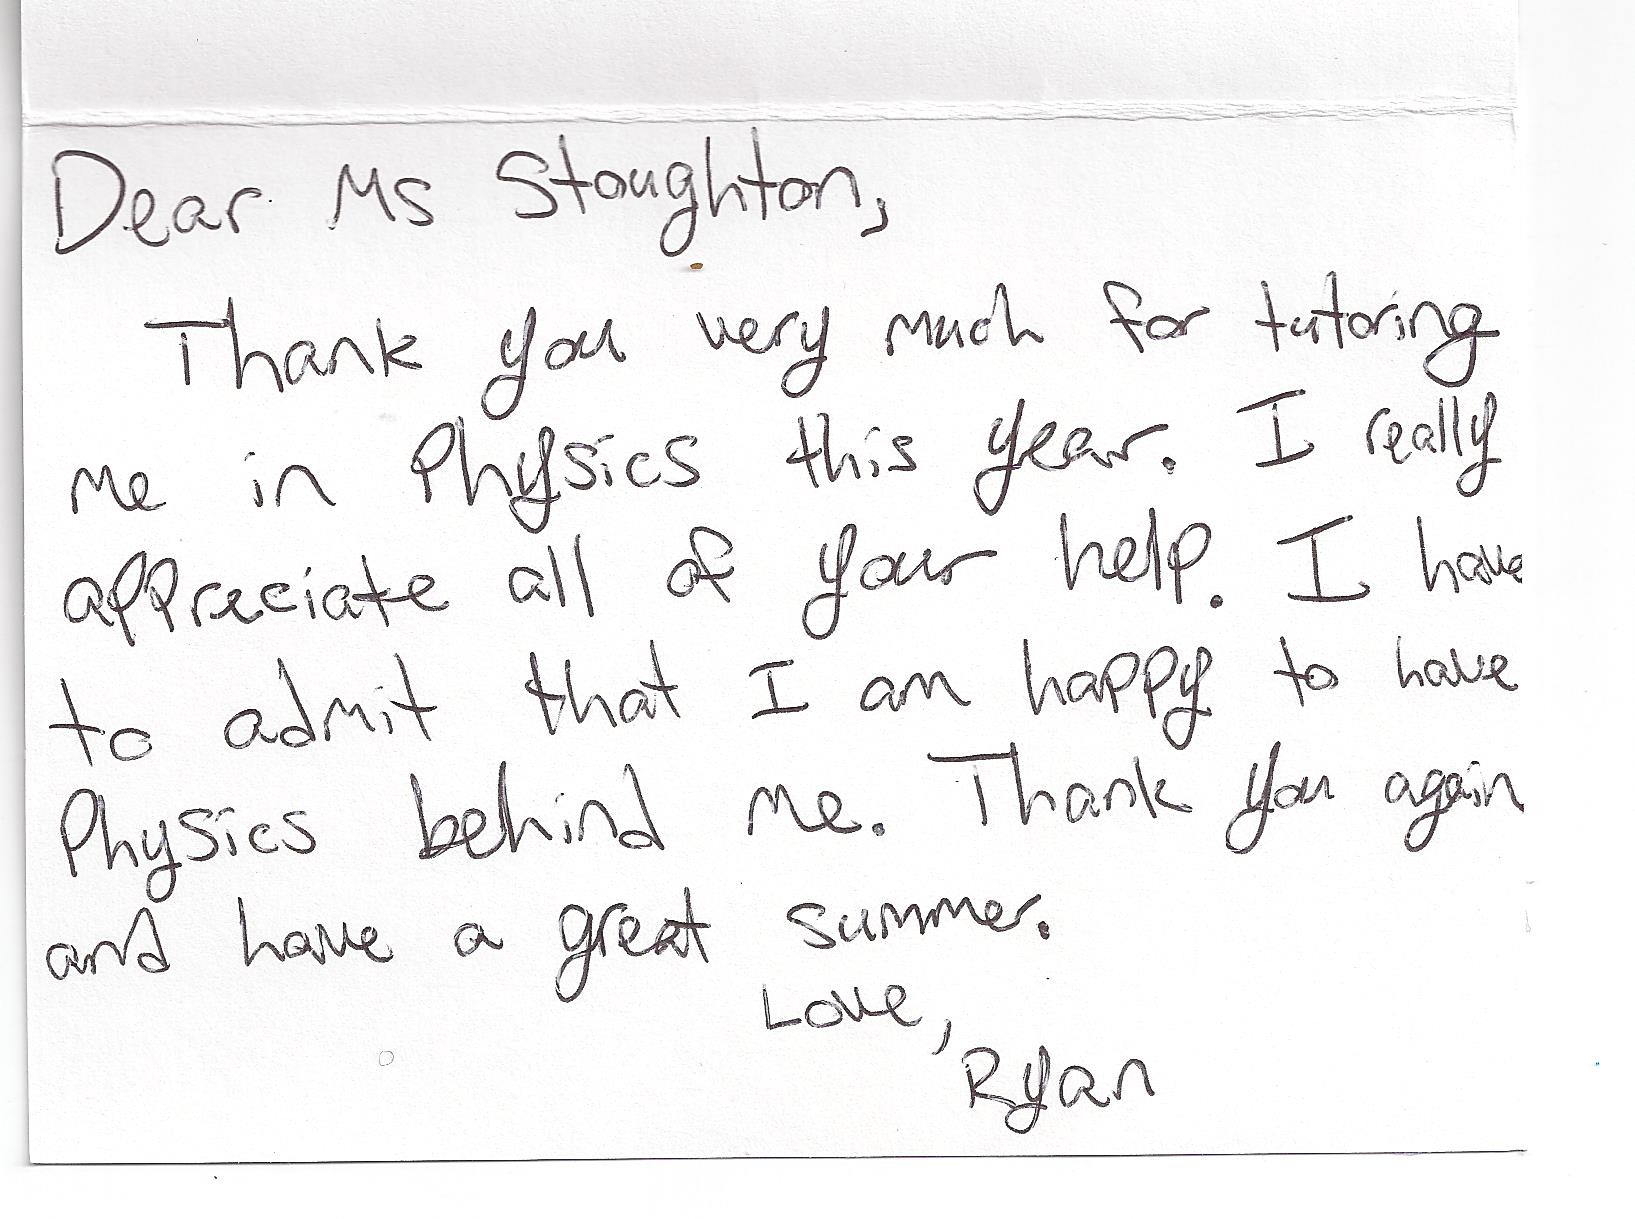 Dear Ms Stoughton,
Thank you very much for tutoring
me in Physics this year. I really
appreciate all of your help. I have
to admit that I am happy to have
Physics behind me. Thank you again
and have a great summer.
Love,
Ryan